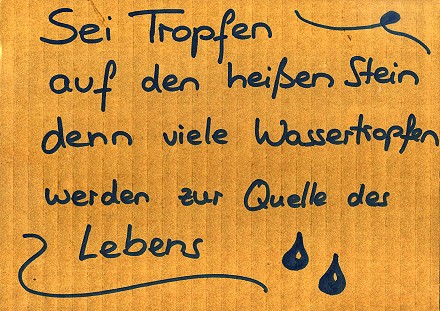 Sei Tropfen
auf den heißen Stein
denn viele Wassertropfen
werden zur Quelle des
Lebens